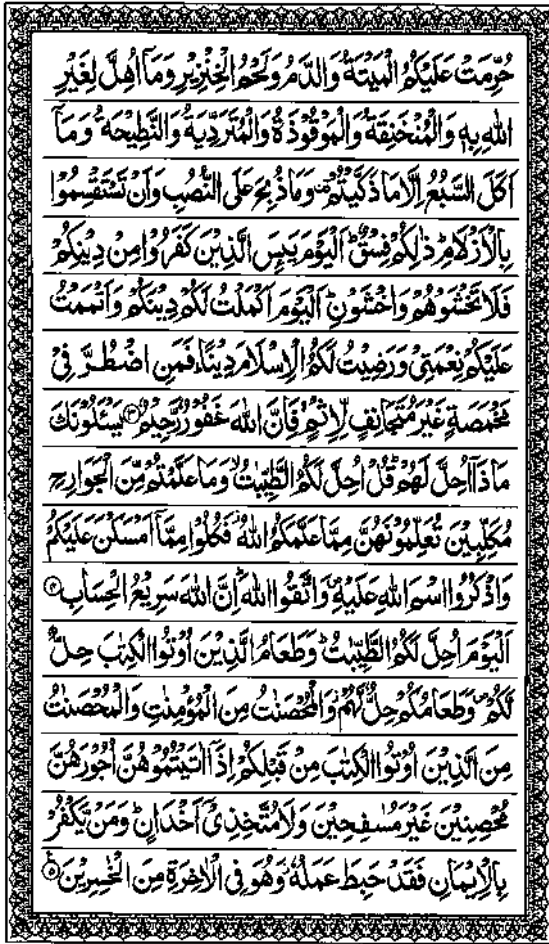 حُرِّمَتْ عَلَيْكُمُ الْمَيْتَةُ وَالدَّمُ وَلَحْمُ الْخِنْزِيْرِ وَمَاۤ اُهِلَّ لِغَيْرِ
اللّٰهِ بِهٖ وَالْمُنْخَنِقَةُ وَالْمَوْقُوْذَةُ وَالْمُتَرَدِّيَةُ وَالنَّطِيْحَةُ وَمَاۤ
اَكَلَ السَّبُعُ اِلَّا مَا ذَكَّيْتُمْ ۣ وَمَا ذُبِحَ عَلَى النُّصُبِ وَاَنْ تَسْتَقْسِمُوْا
بِالْاَزْلَامِ ؕ ذٰلِكُمْ فِسْقٌ ؕ اَلْيَوْمَ يَىِٕسَ الَّذِيْنَ كَفَرُوْا مِنْ دِيْنِكُمْ
فَلَا تَخْشَوْهُمْ وَاخْشَوْنِ ؕ اَلْيَوْمَ اَكْمَلْتُ لَكُمْ دِيْنَكُمْ وَاَتْمَمْتُ
عَلَيْكُمْ نِعْمَتِيْ وَرَضِيْتُ لَكُمُ الْاِسْلَامَ دِيْنًا ؕ فَمَنِ اضْطُرَّ فِيْ
مَخْمَصَةٍ غَيْرَ مُتَجَانِفٍ لِّاِثْمٍ ۙ فَاِنَّ اللّٰهَ غَفُوْرٌ رَّحِيْمٌ ﴿۳﴾ يَسْـَٔلُوْنَكَ
مَاذَاۤ اُحِلَّ لَهُمْ ؕ قُلْ اُحِلَّ لَكُمُ الطَّيِّبٰتُ ۙ وَمَا عَلَّمْتُمْ مِّنَ الْجَوَارِحِ
مُكَلِّبِيْنَ تُعَلِّمُوْنَهُنَّ مِمَّا عَلَّمَكُمُ اللّٰهُ ؗ فَكُلُوْا مِمَّاۤ اَمْسَكْنَ عَلَيْكُمْ
وَاذْكُرُوا اسْمَ اللّٰهِ عَلَيْهِ ۪ وَاتَّقُوا اللّٰهَ ؕ اِنَّ اللّٰهَ سَرِيْعُ الْحِسَابِ ﴿۴﴾
اَلْيَوْمَ اُحِلَّ لَكُمُ الطَّيِّبٰتُ ؕ وَطَعَامُ الَّذِيْنَ اُوْتُوا الْكِتٰبَ حِلٌّ
لَّكُمْ ۪ وَطَعَامُكُمْ حِلٌّ لَّهُمْ ؗ وَالْمُحْصَنٰتُ مِنَ الْمُؤْمِنٰتِ وَالْمُحْصَنٰتُ
مِنَ الَّذِيْنَ اُوْتُوا الْكِتٰبَ مِنْ قَبْلِكُمْ اِذَاۤ اٰتَيْتُمُوْهُنَّ اُجُوْرَهُنَّ
مُحْصِنِيْنَ غَيْرَ مُسٰفِحِيْنَ وَلَا مُتَّخِذِيْۤ اَخْدَانٍ ؕ وَمَنْ يَّكْفُرْ
بِالْاِيْمَانِ فَقَدْ حَبِطَ عَمَلُهٗ ؗ وَهُوَ فِي الْاٰخِرَةِ مِنَ الْخٰسِرِيْنَ ﴿۵﴾